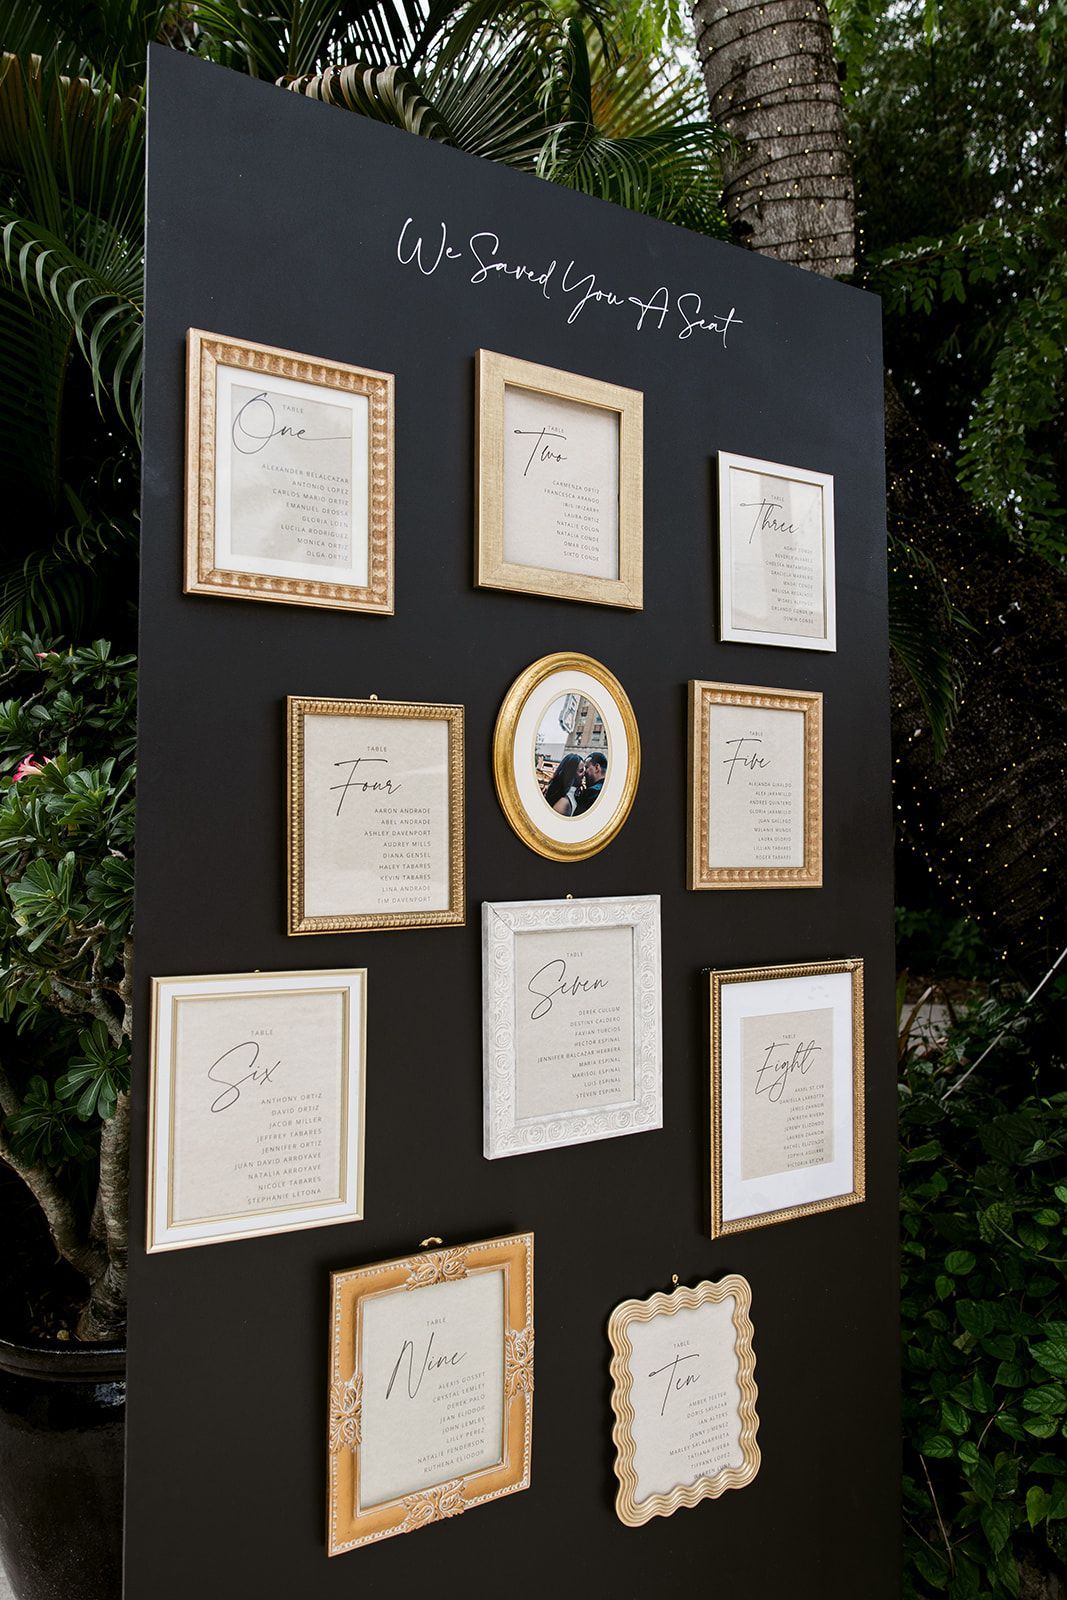 We Saved You A Seat
TABLE
One
ALEXANDER BELALCAZAR
ANTONIO LOPEZ
CARLOS MARIO ORTIZ
EMANUEL DEOSSA
GLORIA LOEN
LUCILA RODRIGUEZ
MONICA ORTIZ
OLGA ORTIZ
TABLE
Two
CARMENZA ORTIZ
FRANCESCA ARANGO
IRIS IRIZARRY
LAURA ORTIZ
NATALIE COLON
NATALIA CONDE
OMAR COLON
SIXTO CONDE
TABLE
Three
CONDE
BEVERLY ALVAREZ
CHELSEA MATAMOROS
GRACIELA MARRERO
MAGAI CONDE
MELISSA REGALADO
MISAEL ALFONSO
ORLANDO CONDE JR
OSMIN CONDE
TABLE
Four
AARON ANDRADE
ABEL ANDRADE
ASHLEY DAVENPORT
AUDREY MILLS
DIANA GENSEL
HALEY TABARES
KEVIN TABARES
LINA ANDRADE
TIM DAVENPORT
TABLE
Five
ALEJANDA GIRALDO
ALEX JARAMILLO
ANDRES QUINTERO
GLORIA JARAMILLO
JUAN GALLEGO
MELANIE MUNDE
LAURA OSORIO
LILLIAN TABARES
ROGER TABARES
TABLE
Six
ANTHONY ORTIZ
DAVID ORTIZ
JACOB MILLER
JEFFREY TABARES
JENNIFER ORTIZ
JUAN DAVID ARROYAVE
NATALIA ARROYAVE
NICOLE TABARES
STEPHANIE LETONA
TABLE
Seven
DEREK CULLUM
DESTINY CALDERO
FAVIAN TURCIOS
HECTOR ESPINAL
JENNIFER BALCAZAR HERRERA
MARIA ESPINAL
MARISOL ESPINAL
LUIS ESPINAL
STEVEN ESPINAL
TABLE
Eight
AXSEL ST.CYR
DANIELLA LARROTTA
JAMES ZARNOW
JANIBETH RIVERA
JEREMY ELIZONDO
LAUREN ZARNOW
RACHEL ELIZONDO
SOPHIA AGUIRRE
VICTORIA ST.CYR
TABLE
Nine
ALEXIS GOSSET
CRYSTAL LEMLEY
DEREK PALO
JEAN ELIODOR
JOHN LEMLEY
LILLY PEREZ
NATALIE FENDERSON
RUTHENA ELIODOR
TABLE
Ten
AMBER TEETER
DORIS SALAZAR
IAN ALTERS
JENNY JIMENEZ
MARLEY SALAVARRIETA
TATIANA RIVERA
TIFFANY LOPEZ
WARREN LUNA